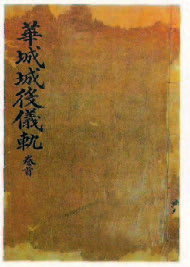 華城城役儀軌
卷首